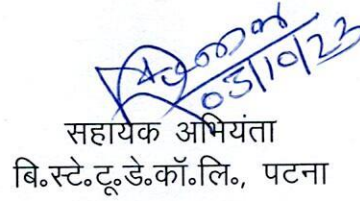 05/10/23
सहायक अभियंता
बि॰स्टे॰टू॰डे॰कॉ॰लि॰, पटना